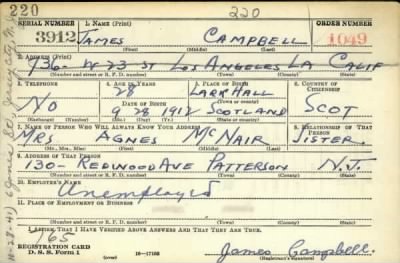 220
220
SERIAL NUMBER 1. Name (Print) ORDER NUMBER
3912 JAMES CAMPBELL 1049
(First) (Middle) (Last)
2. Address (Print)
736- W 23 ST LOS ANGELES LA CALIF
(Number and street or R. F. D. number) (Town) (County) (State)
3. Telephone 4. Age in Years 5. Place of Birth 6. Country of Citizenship
28 LARKHALL
NO Date of Birth (Town or county) SCOT
9 28 1912 SCOTLAND
(Exchange) (No.) (Mo.) (Day) (Yr.) (State or country)
7. Name of Person Who Will Always Know Your Address 8. Relationship of That Person
MRS AGNES MCNAIR SISTER.
(Mr., Mrs., Miss) (First) (Middle) (Last)
9. Address of That Person
130- REDWOOD AVE PATTERSON N.J.
(Number and street or R. F. D. number) (Town) (County) (State)
10. Employer's Name
Unemployed
11. Place of Employment or Business
(Number and street or R. F. D. number) (Town) (County) (State)
I Affirm That I Have Verified Above Answers and That They Are True.
REGISTRATION CARD
D. S. S. Form 1 16-17105 James Campbell
(Registrant's signature)